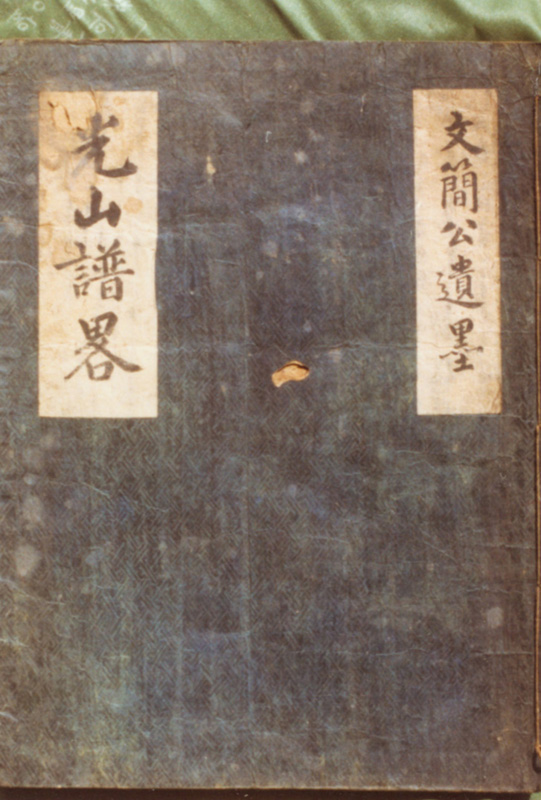 文簡公遺墨
光山譜畧